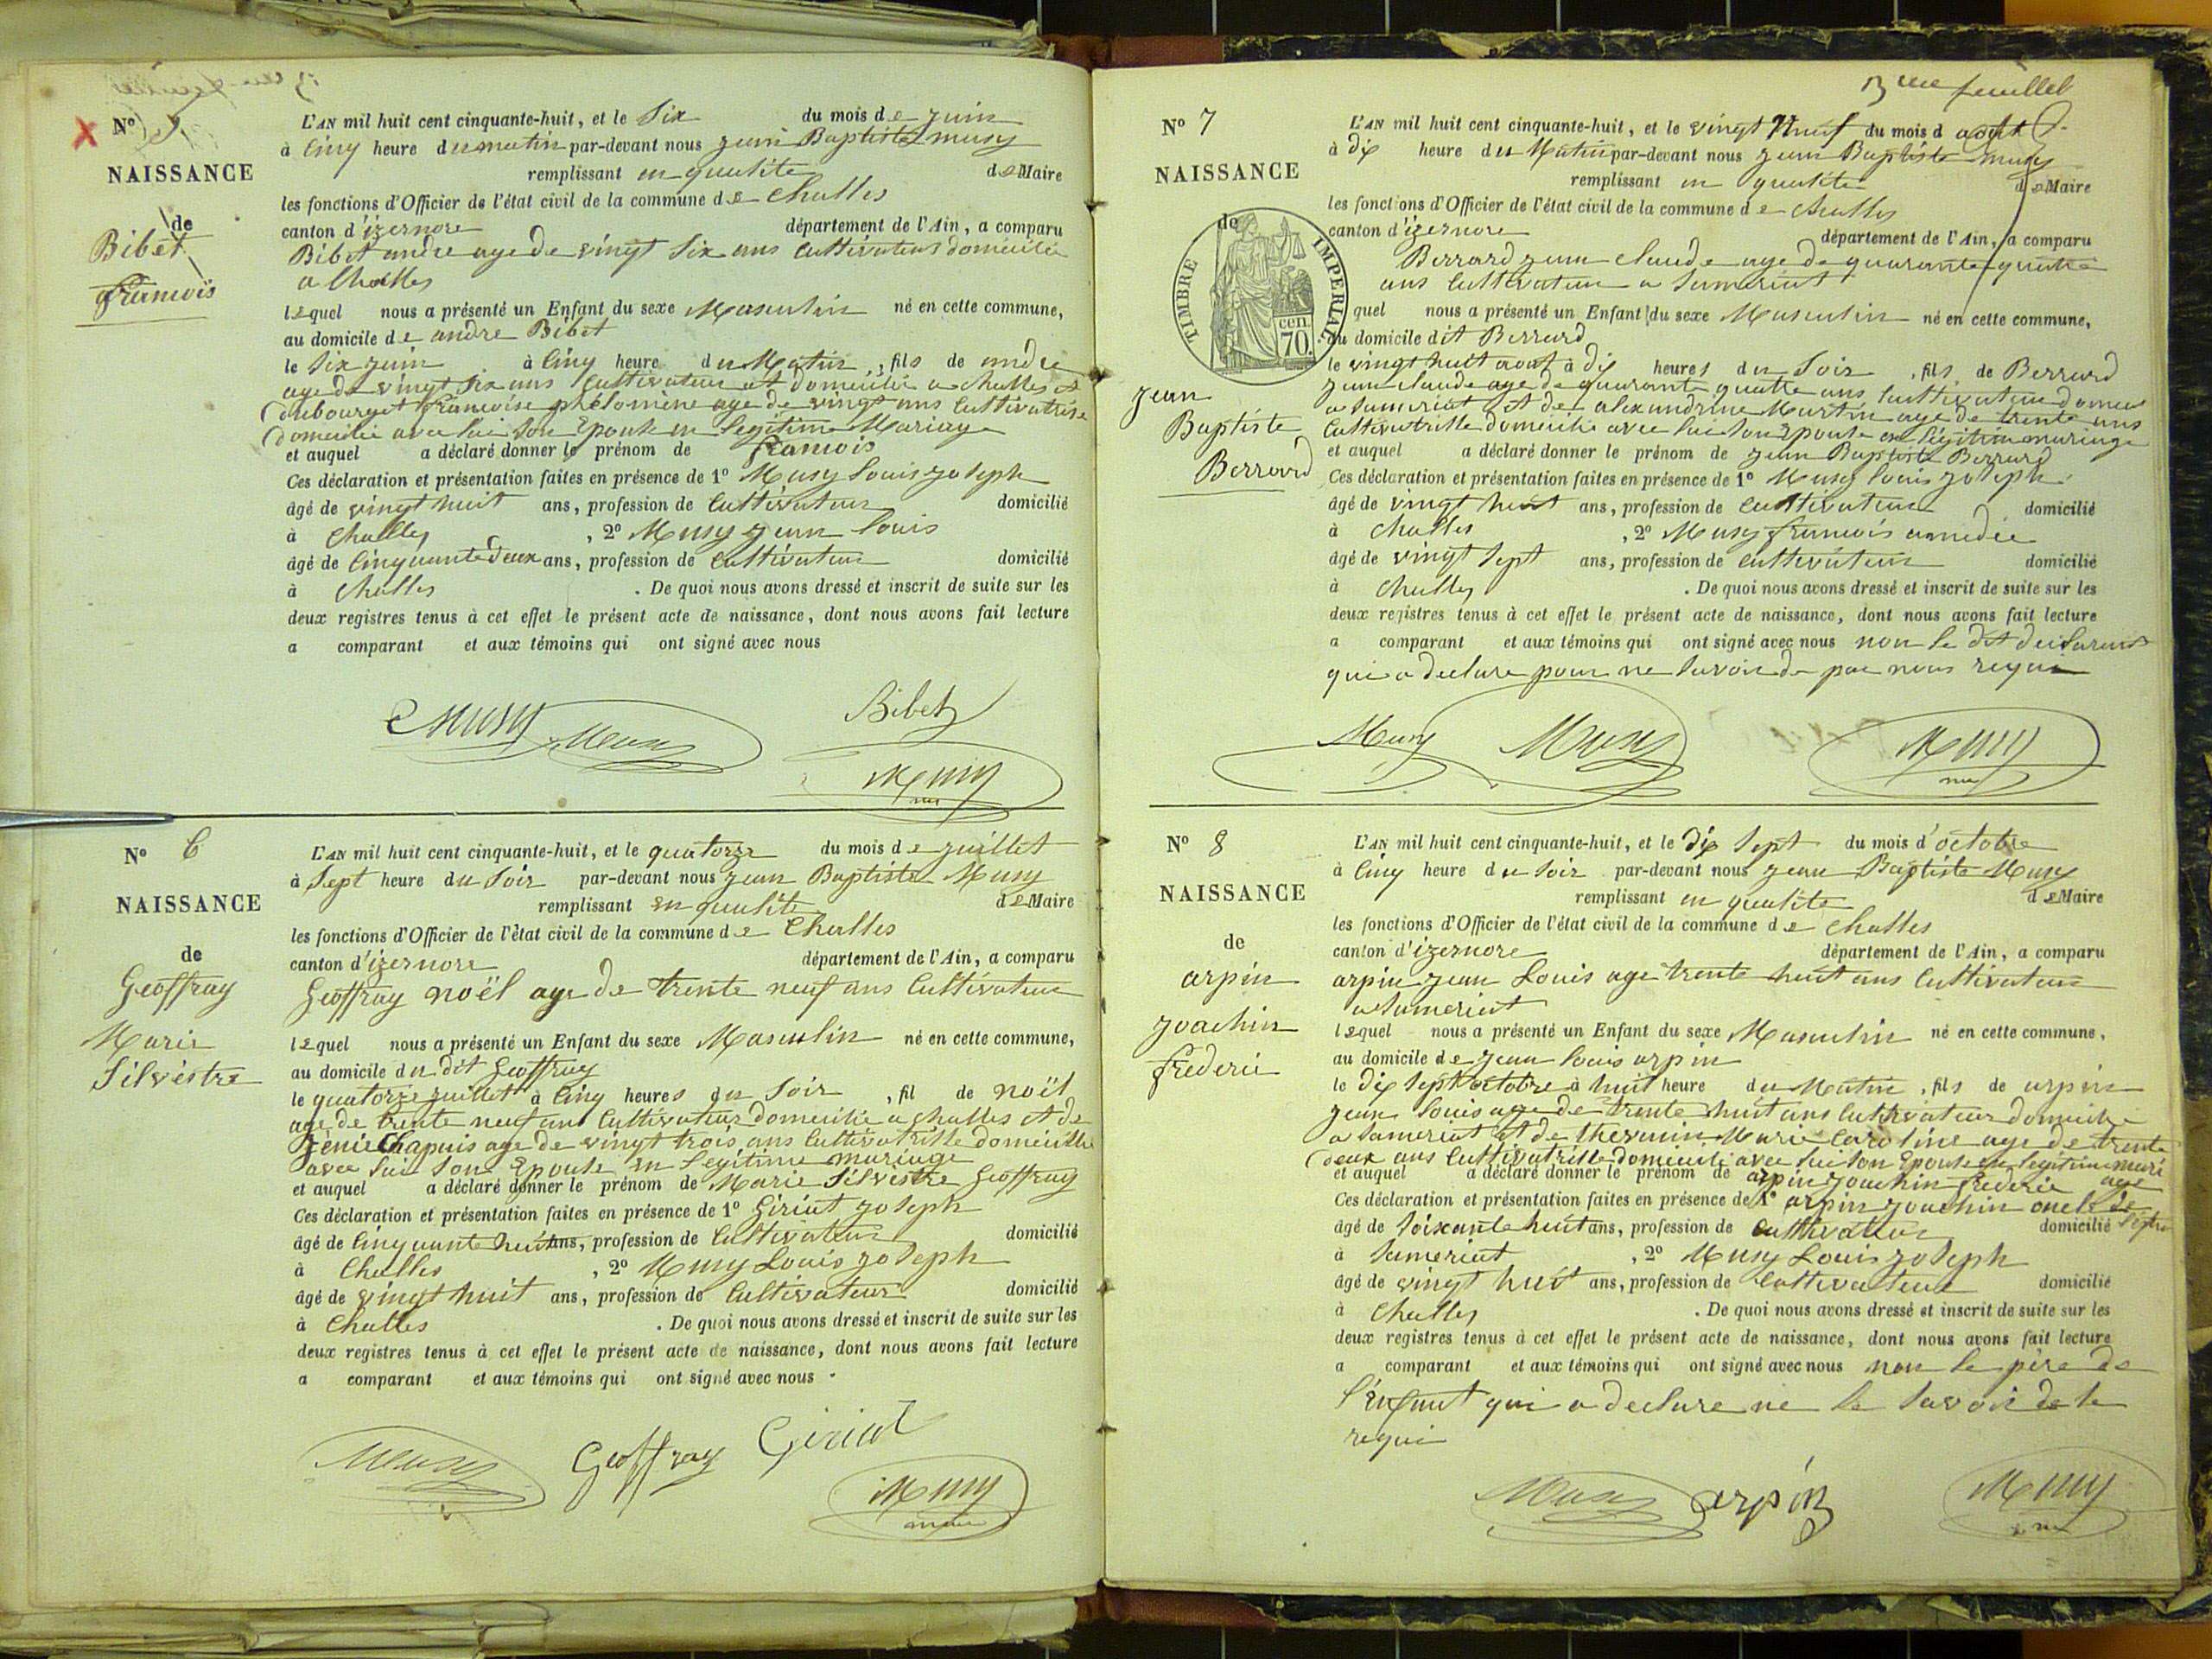 Nº 5
NAISSANCE
de
Bibet
françois
L'AN mil huit cent cinquante-huit, et le Six du mois de juin
à Cinq heure du matin par-devant nous jean Baptiste musy
remplissant en qualité de Maire
les fonctions d'Officier de l'état civil de la commune de Challes
canton d'izernore département de l'Ain, a comparu
Bibet andre age de vingt Six ans Cultivateur domicilié
a Challes
lequel nous a présenté un Enfant du sexe Masculin né en cette commune,
au domicile de andre Bibet
le Six juin à Cinq heure du Matin, fils de andre
age de vingt Six ans Cultivateur et domicilié a challes et
dubourget françoise philomène age de vingt ans Cultivatrise
domicilié avec lui Son Epouse en legitime Mariage
et auquel a déclaré donner le prénom de françois
Ces déclaration et présentation faites en présence de 1º Musy Louis joseph
âgé de vingt huit ans, profession de Cultivateur domicilié
à Challes, 2º Musy jean louis
âgé de Cinquante deux ans, profession de Cultivateur domicilié
à Challes. De quoi nous avons dressé et inscrit de suite sur les
deux registres tenus à cet effet le présent acte de naissance, dont nous avons fait lecture
a comparant et aux témoins qui ont signé avec nous
Musy Musy Bibet
Musy
Nº 6
NAISSANCE
de
Geoffray
Marie
Silvestre
L'AN mil huit cent cinquante-huit, et le quatorze du mois de juillet
à Sept heure du Soir par-devant nous jean Baptiste Musy
remplissant en qualité de Maire
les fonctions d'Officier de l'état civil de la commune de Challes
canton d'izernore département de l'Ain, a comparu
Geoffray noël age de trente neuf ans Cultivateur
lequel nous a présenté un Enfant du sexe Masculin né en cette commune,
au domicile du dit Geoffray
le quatorze juillet à Cinq heures du Soir, fil de noël
age de trente neuf ans Cultivateur domicilié a challes et de
Chapuis age de vingt trois ans Cultivatrisse domicilié
avec lui Son Epouse en Legitime mariage
et auquel a déclaré donner le prénom de Marie Silvestre Geoffray
Ces déclaration et présentation faites en présence de 1º Giriat joseph
âgé de Cinquante huit ans, profession de Cultivateur domicilié
à Challes, 2º Musy Louis joseph
âgé de vingt huit ans, profession de Cultivateur domicilié
à Challes. De quoi nous avons dressé et inscrit de suite sur les
deux registres tenus à cet effet le présent acte de naissance, dont nous avons fait lecture
a comparant et aux témoins qui ont signé avec nous.
Musy Geoffray Giriat
Musy
3me feuillet
Nº 7
NAISSANCE
de
TIMBRE IMPERIAL
70. cen
jean
Baptiste
Berrard
L'AN mil huit cent cinquante-huit, et le vingt neuf du mois d août
à dix heure du Matin par-devant nous jean Baptiste musy
remplissant en qualité de Maire
les fonctions d'Officier de l'état civil de la commune de Challes
canton d'izernore département de l'Ain, a comparu
Berrard jean claude age de quarante quatre
ans Cultivateur a Sameriat
quel nous a présenté un Enfant du sexe Masculin né en cette commune,
au domicile dit Berrard
le vingt huit aout à dix heures du Soir, fils de Berrard
jean claude age de quarante quatre ans, Cultivateur
a Sameriat et de alexandrine Martin age de trente ans
Cultivatrisse domicilié avec lui Son Epouse en légitime mariage
et auquel a déclaré donner le prénom de jean Baptiste Berrard
Ces déclaration et présentation faites en présence de 1º Musy louis joseph
âgé de vingt huit ans, profession de Cultivateur domicilié
à Challes, 2º Musy françois amedée
âgé de vingt Sept ans, profession de Cultivateur domicilié
à Challes. De quoi nous avons dressé et inscrit de suite sur les
deux registres tenus à cet effet le présent acte de naissance, dont nous avons fait lecture
a comparant et aux témoins qui ont signé avec nous non le dit declarant
qui a declare pour ne Savoir de par nous requi
Musy Musy Musy
Nº 8
NAISSANCE
de
arpin
joachin
frederic
L'AN mil huit cent cinquante-huit, et le dix Sept du mois d'octobre
à Cinq heure du Soir par-devant nous jean Baptiste Musy
remplissant en qualité de Maire
les fonctions d'Officier de l'état civil de la commune de Challes
canton d'izernore département de l'Ain, a comparu
arpin jean Louis age trente huit ans Cultivateur
a Sameriat
lequel nous a présenté un Enfant du sexe Masculin né en cette commune,
au domicile de jean louis arpin
le dix Sept octobre à huit heure du Matin, fils de arpin
jean louis age de trente huit ans Cultivateur domicilié
a Sameriat et de thevenin Marie Caroline age de trente
deux ans Cultivatrisse domicilié avec lui Son Epouse en legitime mari
et auquel a déclaré donner le prénom de arpin joachin frederic age
Ces déclaration et présentation faites en présence de 1º arpin joachin oncle
âgé de Soixante huit ans, profession de cultivateur domicilié
à Sameriat, 2º Musy Louis joseph
âgé de vingt huit ans, profession de Cultivateur domicilié
à Challes. De quoi nous avons dressé et inscrit de suite sur les
deux registres tenus à cet effet le présent acte de naissance, dont nous avons fait lecture
a comparant et aux témoins qui ont signé avec nous non le père de
l'Enfant qui a declare ne le Savoir de le
requi
Musy arpin Musy